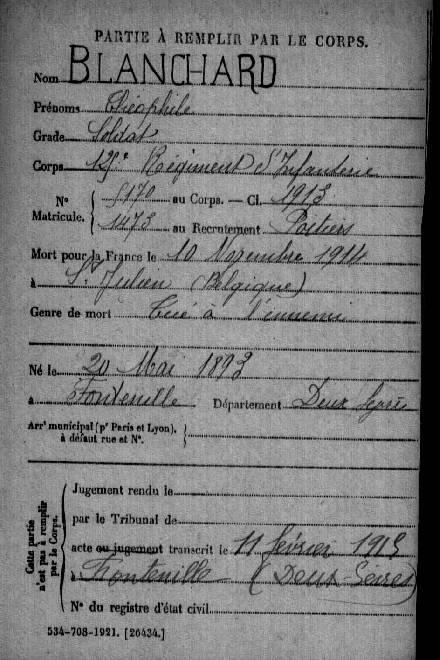 PARTIE À REMPLIR PAR LE CORPS.
Nom BLANCHARD
Prénoms Théophile
Grade Soldat
Corps 125e Régiment d'Infanterie
Nº Matricule. { 5170 au Corps. — Cl. 1913
1473 au Recrutement Poitiers
Mort pour la France le 10 Novembre 1914
à St Julien (Belgique)
Genre de mort Tué à l'ennemi
Né le 20 Mai 1893
à Fontenille Département Deux Sèvres
Arrt municipal (pr Paris et Lyon), à défaut rue et Nº. {
Cette partie n'est pas à remplir par le Corps. {
Jugement rendu le
par le Tribunal de
acte ou jugement transcrit le 11 février 1915
à Fontenille (Deux-Sèvres)
Nº du registre d'état civil
534-708-1921. [26434.]